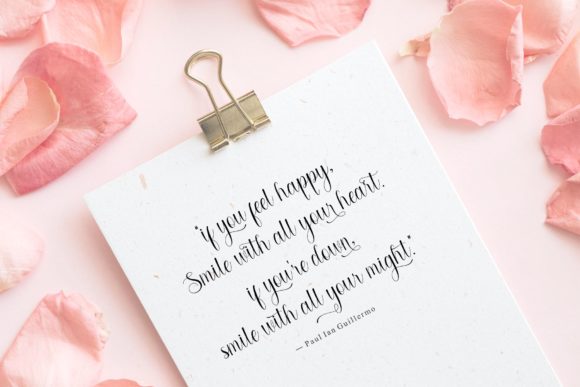 "if you feel happy,
Smile with all your heart.
if you're down,
smile with all your might."
— Paul Ian Guillermo